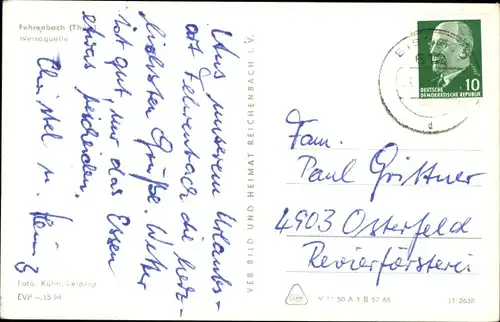 Fehrenbach (Th
Werraquelle
Aus unserem Urlaubs-
ort Fehrenbach die herz-
lichsten Grüße. Wetter
ist gut, nur das Essen
etwas bescheiden.
Christel u. Heinz
Foto: Kühn, Leipzig
EVP –,15 M
VEB BILD UND HEIMAT REICHENBACH I. V.
10
DEUTSCHE
DEMOKRATISCHE REPUBLIK
d
Fam.
Paul Grittner
4903 Osterfeld
Revierförsterei
V 11 50 A 1 B 57 68
L1/2638